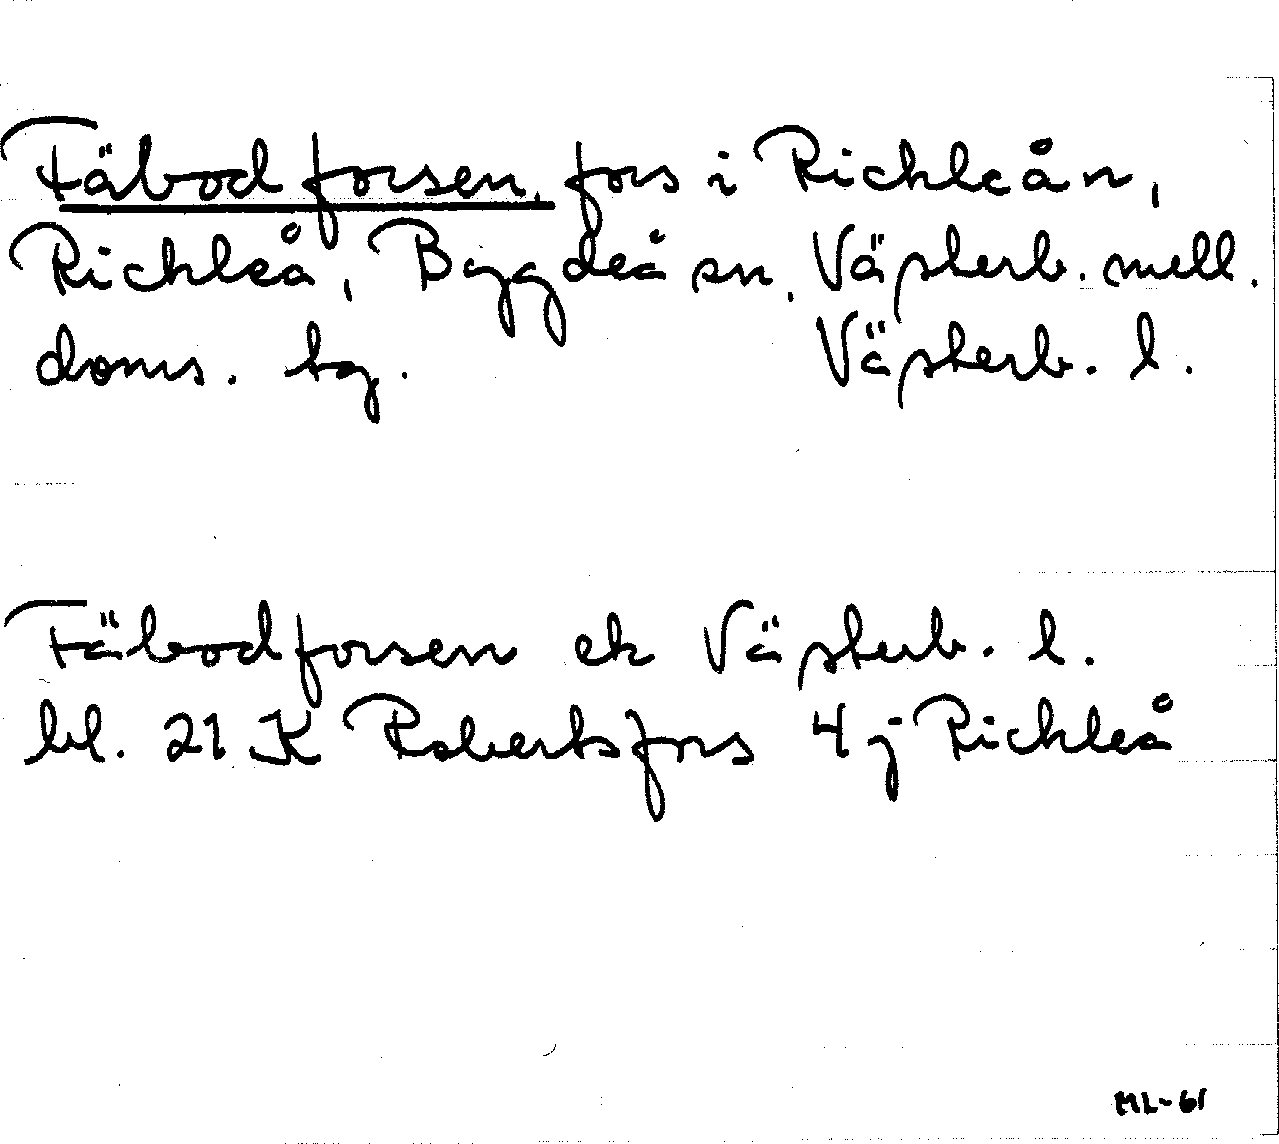 Fäbodforsen, fors i Rickleån,
Rickleå, Bygdeå sn, Västerb. mell.
doms. tg. Västerb. l.
Fäbodforsen ek Västerb. l.
bl. 21 K Robertsfors 4 j Rickleå
ML-61